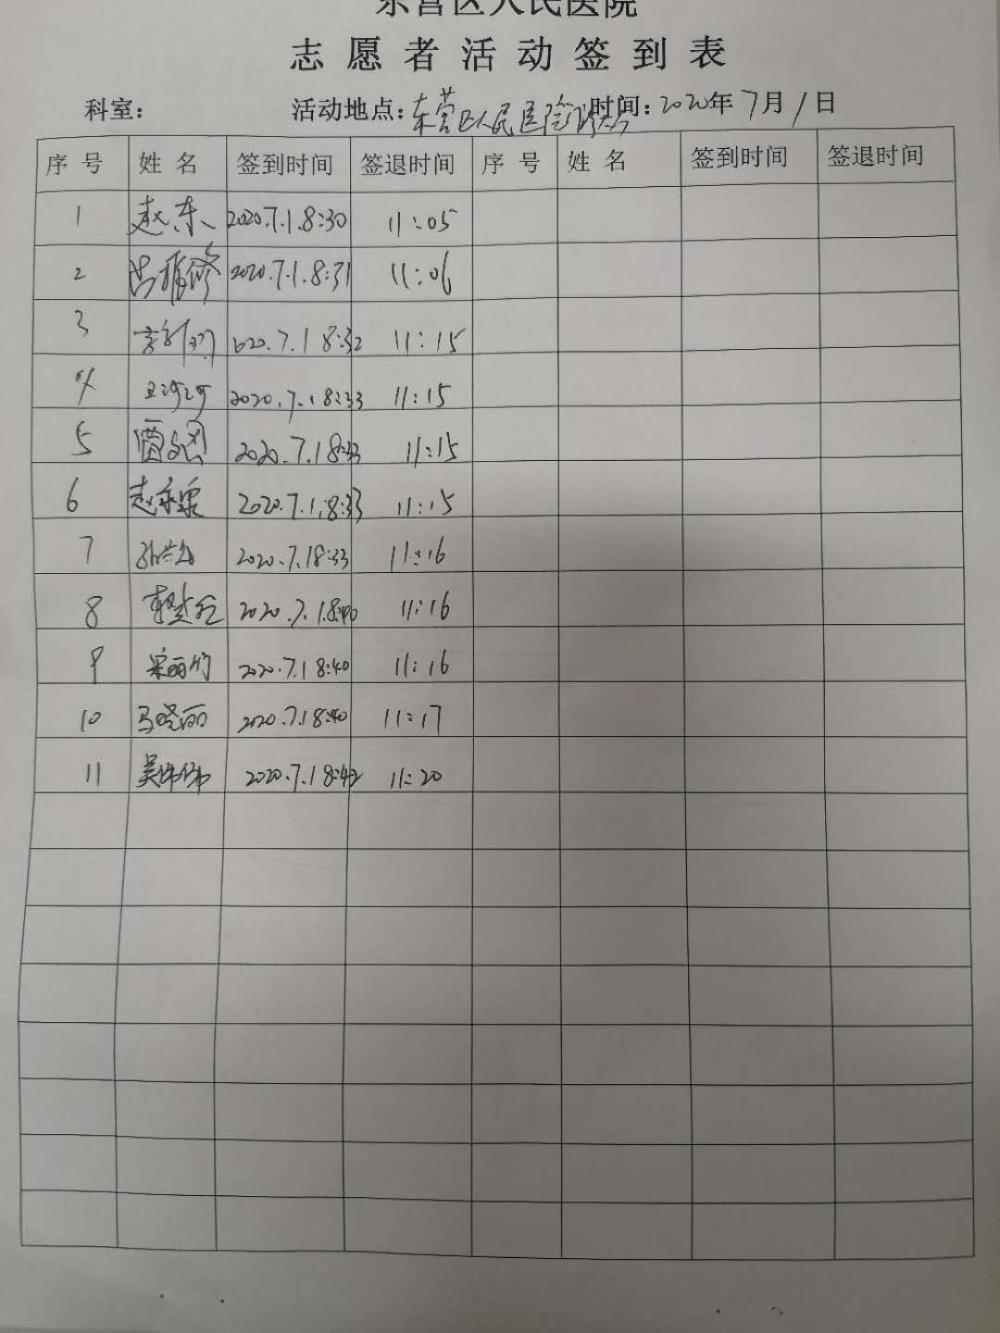 东营区人民医院
志愿者活动签到表
科室： 活动地点：东营区人民医院 时间：2020年7月1日
序号 姓名 签到时间 签退时间 序号 姓名 签到时间 签退时间
1 赵东 2020.7.1.8:30 11:05
2 2020.7.1.8:31 11:06
3 020.7.1 8:32 11:15
4 2020.7.1 8:33 11:15
5 2020.7.1 8:33 11:15
6 赵永泉 2020.7.1.8:33 11:15
7 2020.7.1 8:33 11:16
8 2020.7.1.8:40 11:16
9 宋丽竹 2020.7.1 8:40 11:16
10 马晓丽 2020.7.1 8:40 11:17
11 2020.7.1 8:42 11:20